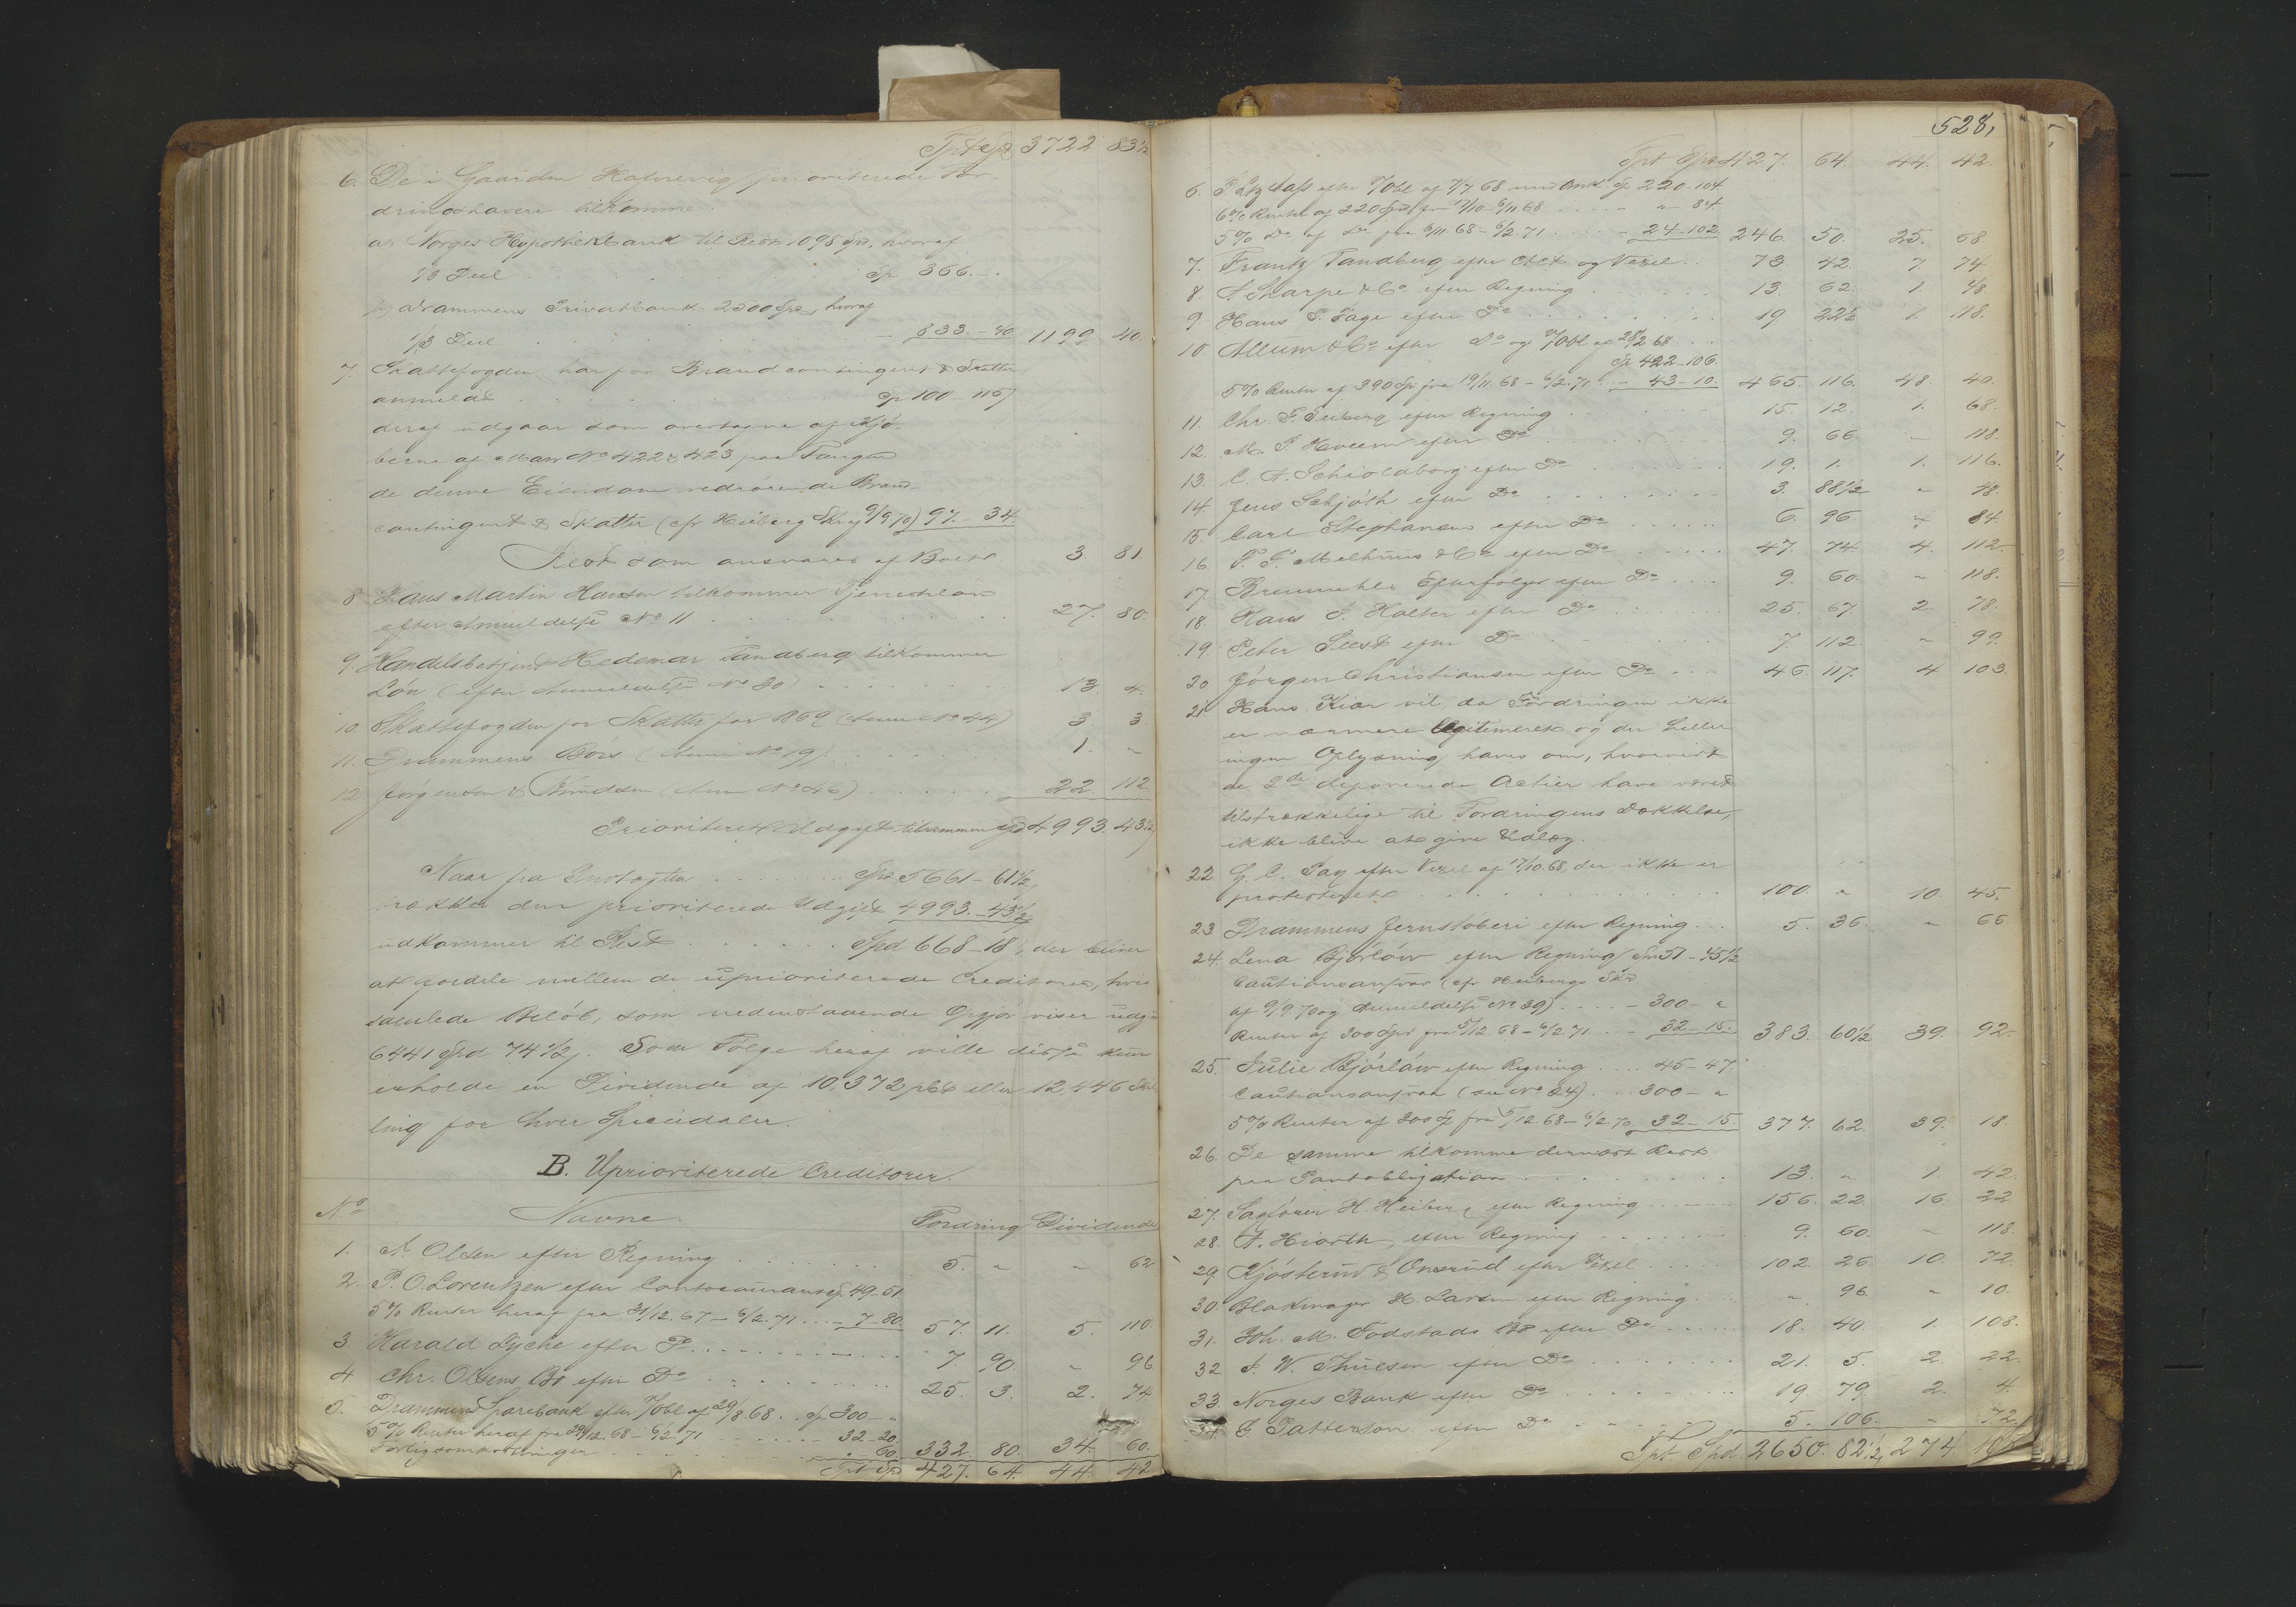 Tpt Spd 3722. 83 1/2
6. De i Gaarden Hafnevig prioriterede For-
dringshavere tilkomme:
a) Norges Hypothekbank til Rest 1098 Spd, hvoraf
1/3 Deel . . . . Sp 366. - -
b) Drammens Privatbank 2500 Spd, hvoraf
1/3 Deel . . . . - 833. - 40 1199. 40.
7. Skattefogden har for Brandcontingent & Skatter
anmeldt . . . . Sp 100 - 115
deraf udgaar som overtagne af Kjø-
berne af Matr No 422 & 423 paa Tangen
de denne Eiendom vedrørende Brand-
contingent & Skatter (cfr Heiberg Skr af 9/9 70) 97. - 34.
Rest som ansvares af Boet 3. 81.
8. Hans Martin Hansen tilkommer Tjenesteløn
efter Anmeldelse No 11 . . . . 27. 80.
9. Handelsbetjent Hedemar Tandberg tilkommer
Løn (efter Anmeldelse No 30) . . . . 13. 4.
10. Skattefogden for Skatter for 1869 (Anm No 44) 3. 3
11. Drammens Børs (Anm No 19) . . . . 1. "
12. Jørgensen & Knudsen (Anm No 46) . . . . 22. 112
Prioriteret Udgift tilsammen Spd 4993. 43 1/2
Naar fra Indtægten . . . . Spd 5661 - 61 1/2
trækkes den prioriterede Udgift 4993. - 43 1/2
udkommer til Rest . . . . Spd 668 - 18, der bliver
at fordele mellem de uprioriterede Creditorer, hvis
samlede Beløb, som nedenstaaende Opgjør viser udgjør
6441 Spd 74 1/2 s. Som Følge heraf ville disse kun
erholde en Dividende af 10,372 pCt eller 12,446 Skil-
ling for hver Speciedaler.
B. Uprioriterede Creditorer.
No Navne. Fordring Dividende
1. A. Olsen efter Regning . . . . 5. " " 62
2. P. O. Lorentzen efter Contocourant Sp 49-51
5% Renter heraf fra 31/12. 67 - 6/2. 71 . . - 7-80. 57. 11. 5. 110
3 Harald Lyche efter Do . . . . 7. 90. " 96
4 Chr. Olsens Bo efter Do . . . . 25. 3. 2. 74
5. Drammens Sparebank efter V/Obl af 29/8. 68 . . Sp 300 - "
5% Renter heraf fra 29/12. 68 - 6/2. 71 . . . . 32-20.
Forligsomkostninger . . . . " 60. 332. 80. 34. 60.
Tpt Sp 427. 64. 44. 42
528,
Tpt Spd 427. 64. 44. 42.
6. P. Ltz Aass efter V/Obl af 7/7 68 med Omk. Sp 220-104
6% Renter af 220 Spd fra 17/10 - 6/11 68 . . . . - " - 84.
5% Do af Do fra 6/11. 68 - 6/2. 71 . . . . - 24-102 246. 50. 25. 68
7. Frantz Tandberg efter Attest og Vexel . . 73 42 7. 74
8. A Sharpe & Co efter Regning . . . . 13. 62. 1. 48.
9 Hans P. Fage efter Do . . . . 19 22 1/2 1. 118.
10. Allum & Co efter Do og V/Obl af 28/2 68 . .
Sp 422-106.
5% Renter af 390 Sp fra 19/11. 68 - 6/2. 71 . - 43-10. 465. 116. 48. 40.
11. Chr. F. Seeberg efter Regning . . . . 15. 12. 1. 68.
12. M. P. Hveem efter Do . . . . 9. 66. " 118.
13. C. A. Schioldborg efter Do . . . . 19. 1. 1. 116.
14. Jens Schjøth efter Do . . . . 3. 88 1/2 " 48.
15. Carl Stephansen efter Do . . . . 6. 96. " 84.
16. F. F. Melhuus & Co efter Do . . . . 47. 74 4. 112.
17. Efterfølger efter Do . . . . 9. 60. " 118.
18. Hans J. Holter efter Do . . . . 25. 67. 2. 78.
19. Peter Seest efter Do . . . . 7. 112. " 99.
20 Jørgen Christiansen efter Do . . . . 46. 117. 4. 103.
21 Hans Kiær vil, da Fordringen ikke
er nærmere legitimeret og der heller
ingen Oplysning haves om, hvorvidt
de 2de deponerede Actier have været
tilstrækkelige til Fordringens Dækkelse,
ikke blive at give Udlæg.
22 G. C. Fay efter Vexel af 17/10. 68, der ikke er
protesteret . . . . 100. " 10. 45.
23. Drammens Jernstøberi efter Regning . . . 5. 36. " 66
24. Lena Bjørløw efter Regning Spd 51-45 1/2
Cautionsansvar (cfr Heibergs Skr
af 9/9 70 og Anmeldelse No 39) . . . - 300 - "
Renter af 300 Spd fra 5/12. 68 - 6/2. 71 . . - 32-15. 383. 60 1/2 39. 92
25. Julie Bjørløw efter Regning . . . . 45-47.
Cautionsansvar (see No 24) . . 300 - "
5% Renter af 300 Sp fra 5/12. 68 - 6/2. 70. 32-15. 377. 62. 39. 18.
26. De samme tilkomme dernæst Rest
paa Pantobligation . . . . 13. " 1. 42
27. Sagfører H. Heiberg efter Regning . . . . 156. 22. 16 22
28. A. Hiorth, efter Regning . . . . 9. 60. " 118.
29 Kjøsterud & Onsrud efter Vexel . . . . 102. 26 10. 72.
30. Blakmager H. Larsen efter Regning . . . . " 96. " 10.
31. Joh. M. Fodstads Bo efter Do . . . . 18. 40. 1. 108.
32 J. W. Thuesen efter Do . . . . 21. 5. 2. 22.
33. Norges Bank efter Do . . . . 19. 79. 2. 4.
34. G Patterson efter Do . . . . 5. 106. " 72.
Tpt. Spd 2650. 82 1/2 274.